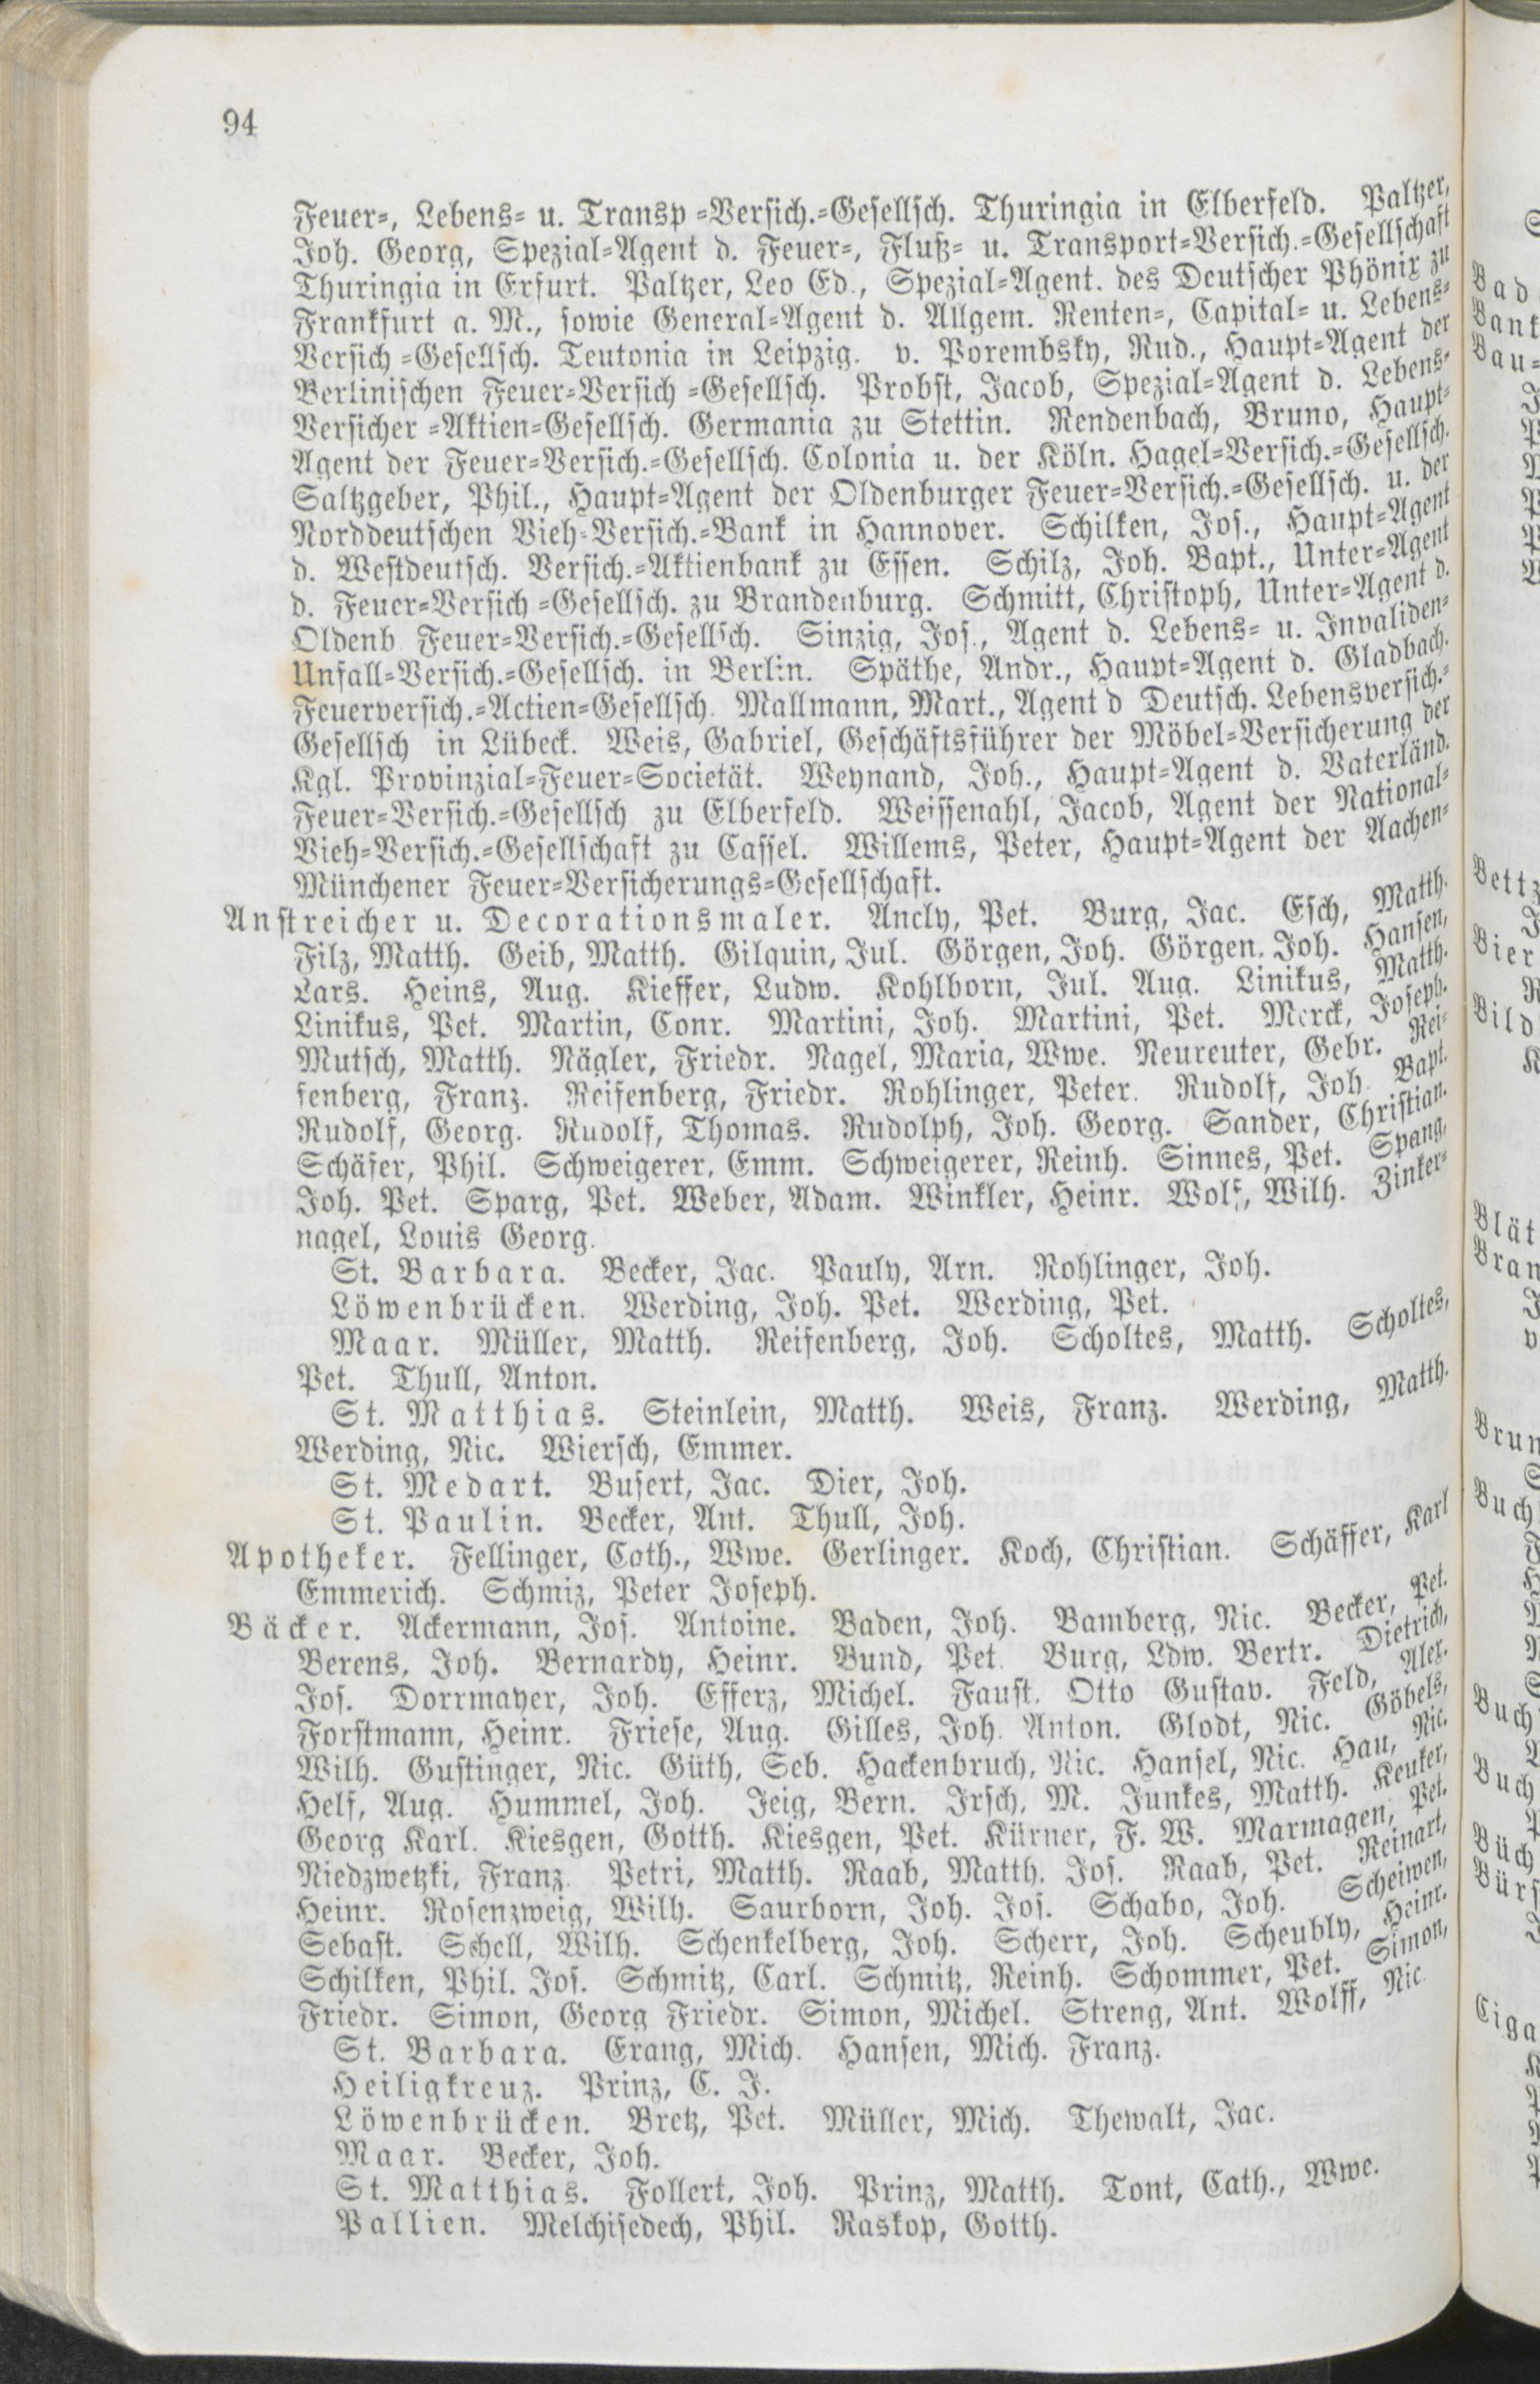 94
Feuer-, Lebens- u. Transp -Versich.-Gesellsch. Thuringia in Elberfeld. Paltzer,
Joh. Georg, Spezial-Agent d. Feuer-, Fluß- u. Transport-Versich.-Gesellschaft
Thuringia in Erfurt. Paltzer, Leo Ed., Spezial-Agent. des Deutscher Phönix zu
Frankfurt a. M., sowie General-Agent d. Allgem. Renten-, Capital- u. Lebens-
Versich -Gesellsch. Teutonia in Leipzig. v. Porembsky, Rud., Haupt-Agent der
Berlinischen Feuer-Versich -Gesellsch. Probst, Jacob, Spezial-Agent d. Lebens-
Versicher -Aktien-Gesellsch. Germania zu Stettin. Rendenbach, Bruno, Haupt-
Agent der Feuer-Versich.-Gesellsch. Colonia u. der Köln. Hagel-Versich.-Gesellsch.
Saltzgeber, Phil., Haupt-Agent der Oldenburger Feuer-Versich.-Gesellsch. u. der
Norddeutschen Vieh-Versich.-Bank in Hannover. Schilken, Jos., Haupt-Agent
d. Westdeutsch. Versich.-Aktienbank zu Essen. Schilz, Joh. Bapt., Unter-Agent
d. Feuer-Versich -Gesellsch. zu Brandenburg. Schmitt, Christoph, Unter-Agent d.
Oldenb Feuer-Versich.-Gesellsch. Sinzig, Jos., Agent d. Lebens- u. Invaliden-
Unfall-Versich.-Gesellsch. in Berlin. Späthe, Andr., Haupt-Agent d. Gladbach.
Feuerversich.-Actien-Gesellsch. Mallmann, Mart., Agent d Deutsch. Lebensversich.-
Gesellsch in Lübeck. Weis, Gabriel, Geschäftsführer der Möbel-Versicherung der
Kgl. Provinzial-Feuer-Societät. Weynand, Joh., Haupt-Agent d. Vaterländ.
Feuer-Versich.-Gesellsch zu Elberfeld. Weissenahl, Jacob, Agent der National-
Vieh-Versich.-Gesellschaft zu Cassel. Willems, Peter, Haupt-Agent der Aachen-
Münchener Feuer-Versicherungs-Gesellschaft.
Anstreicher u. Decorationsmaler. Ancly, Pet. Burg, Jac. Esch, Matth.
Filz, Matth. Geib, Matth. Gilquin, Jul. Görgen, Joh. Görgen, Joh. Hansen,
Lars. Heins, Aug. Kieffer, Ludw. Kohlborn, Jul. Aug. Linikus, Matth.
Linikus, Pet. Martin, Conr. Martini, Joh. Martini, Pet. Merck, Joseph.
Mutsch, Matth. Nägler, Friedr. Nagel, Maria, Wwe. Neureuter, Gebr. Rei-
fenberg, Franz. Reifenberg, Friedr. Rohlinger, Peter. Rudolf, Joh Bapt.
Rudolf, Georg. Rudolf, Thomas. Rudolph, Joh. Georg. Sander, Christian.
Schäfer, Phil. Schweigerer, Emm. Schweigerer, Reinh. Sinnes, Pet. Spang,
Joh. Pet. Sparg, Pet. Weber, Adam. Winkler, Heinr. Wolf, Wilh. Zinker-
nagel, Louis Georg.
St. Barbara. Becker, Jac. Pauly, Arn. Rohlinger, Joh.
Löwenbrücken. Werding, Joh. Pet. Werding, Pet.
Maar. Müller, Matth. Reifenberg, Joh. Scholtes, Matth. Scholtes,
Pet. Thull, Anton.
St. Matthias. Steinlein, Matth. Weis, Franz. Werding, Matth.
Werding, Nic. Wiersch, Emmer.
St. Medart. Busert, Jac. Dier, Joh.
St. Paulin. Becker, Ant. Thull, Joh.
Apotheker. Fellinger, Cath., Wwe. Gerlinger. Koch, Christian. Schäffer, Karl
Emmerich. Schmiz, Peter Joseph.
Bäcker. Ackermann, Jos. Antoine. Baden, Joh. Bamberg, Nic. Becker, Pet.
Berens, Joh. Bernardy, Heinr. Bund, Pet. Burg, Ldw. Bertr. Dietrich,
Jos. Dorrmayer, Joh. Efferz, Michel. Faust, Otto Gustav. Feld, Alex.
Forstmann, Heinr. Friese, Aug. Gilles, Joh. Anton. Glodt, Nic. Göbels,
Wilh. Gustinger, Nic. Güth, Seb. Hackenbruch, Nic. Hansel, Nic. Hau, Nic.
Helf, Aug. Hummel, Joh. Jeig, Bern. Irsch, M. Junkes, Matth. Keuker,
Georg Karl. Kiesgen, Gotth. Kiesgen, Pet. Kürner, F. W. Marmagen, Pet.
Niedzwetzki, Franz. Petri, Matth. Raab, Matth. Jos. Raab, Pet. Reinart,
Heinr. Rosenzweig, Wilh. Saurborn, Joh. Jos. Schabo, Joh. Scheiwen,
Sebast. Schell, Wilh. Schenkelberg, Joh. Scherr, Joh. Scheubly, Heinr.
Schilken, Phil. Jos. Schmitz, Carl. Schmitz, Reinh. Schommer, Pet. Simon,
Friedr. Simon, Georg Friedr. Simon, Michel. Streng, Ant. Wolff, Nic
St. Barbara. Erang, Mich. Hansen, Mich. Franz.
Heiligkreuz. Prinz, C. J.
Löwenbrücken. Bretz, Pet. Müller, Mich. Thewalt, Jac.
Maar. Becker, Joh.
St. Matthias. Follert, Joh. Prinz, Matth. Tont, Cath., Wwe.
Pallien. Melchisedech, Phil. Raskop, Gotth.